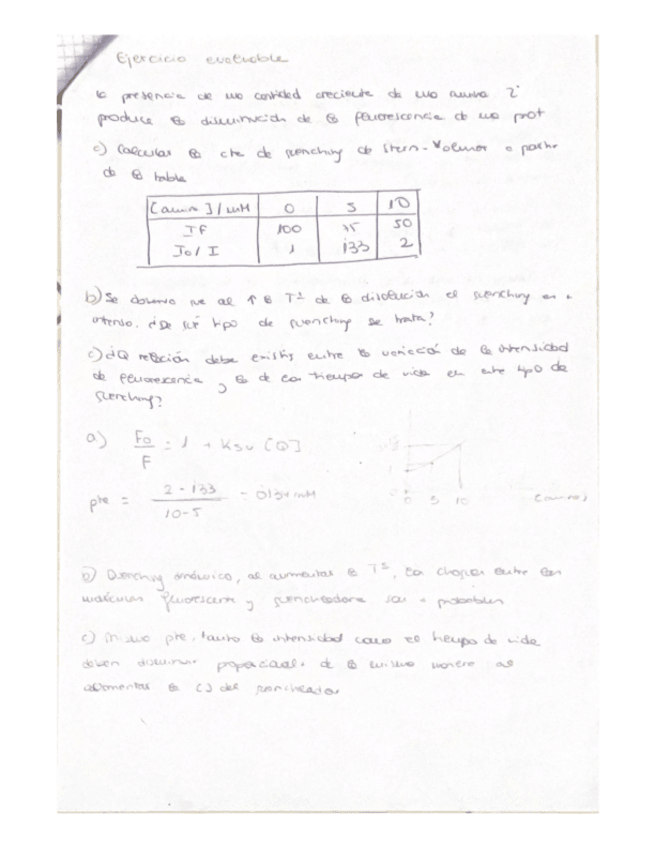 Ejercicio evaluable
la presencia de una cantidad creciente de una amina 2ª
produce la disminución de la fluorescencia de una prot
a) Calcular la cte de quenching de Stern-Volmer a partir
de la tabla
[amina]/mM 0 5 10
IF 100 75 50
Io/I 1 1'33 2
b) Se observa que al ↑ la Tª de la disolución el quenching es +
intenso. ¿De qué tipo de quenching se trata?
c) ¿Q relación debe existir entre la variación de la intensidad
de fluorescencia y la de los tiempos de vida en este tipo de
quenching?
a) Fo/F = 1 + Ksv [Q]
pte = 2 - 1'33 / 10-5 = 0'134 mM
0 5 10 [amina]
b) Quenching dinámico, al aumentar la Tª, los choques entre las
moléculas fluorescente y quencheadora son + probables
c) Misma pte, tanto la intensidad como el tiempo de vida
deben disminuir de la misma manera al
aumentar la [] del quencheador